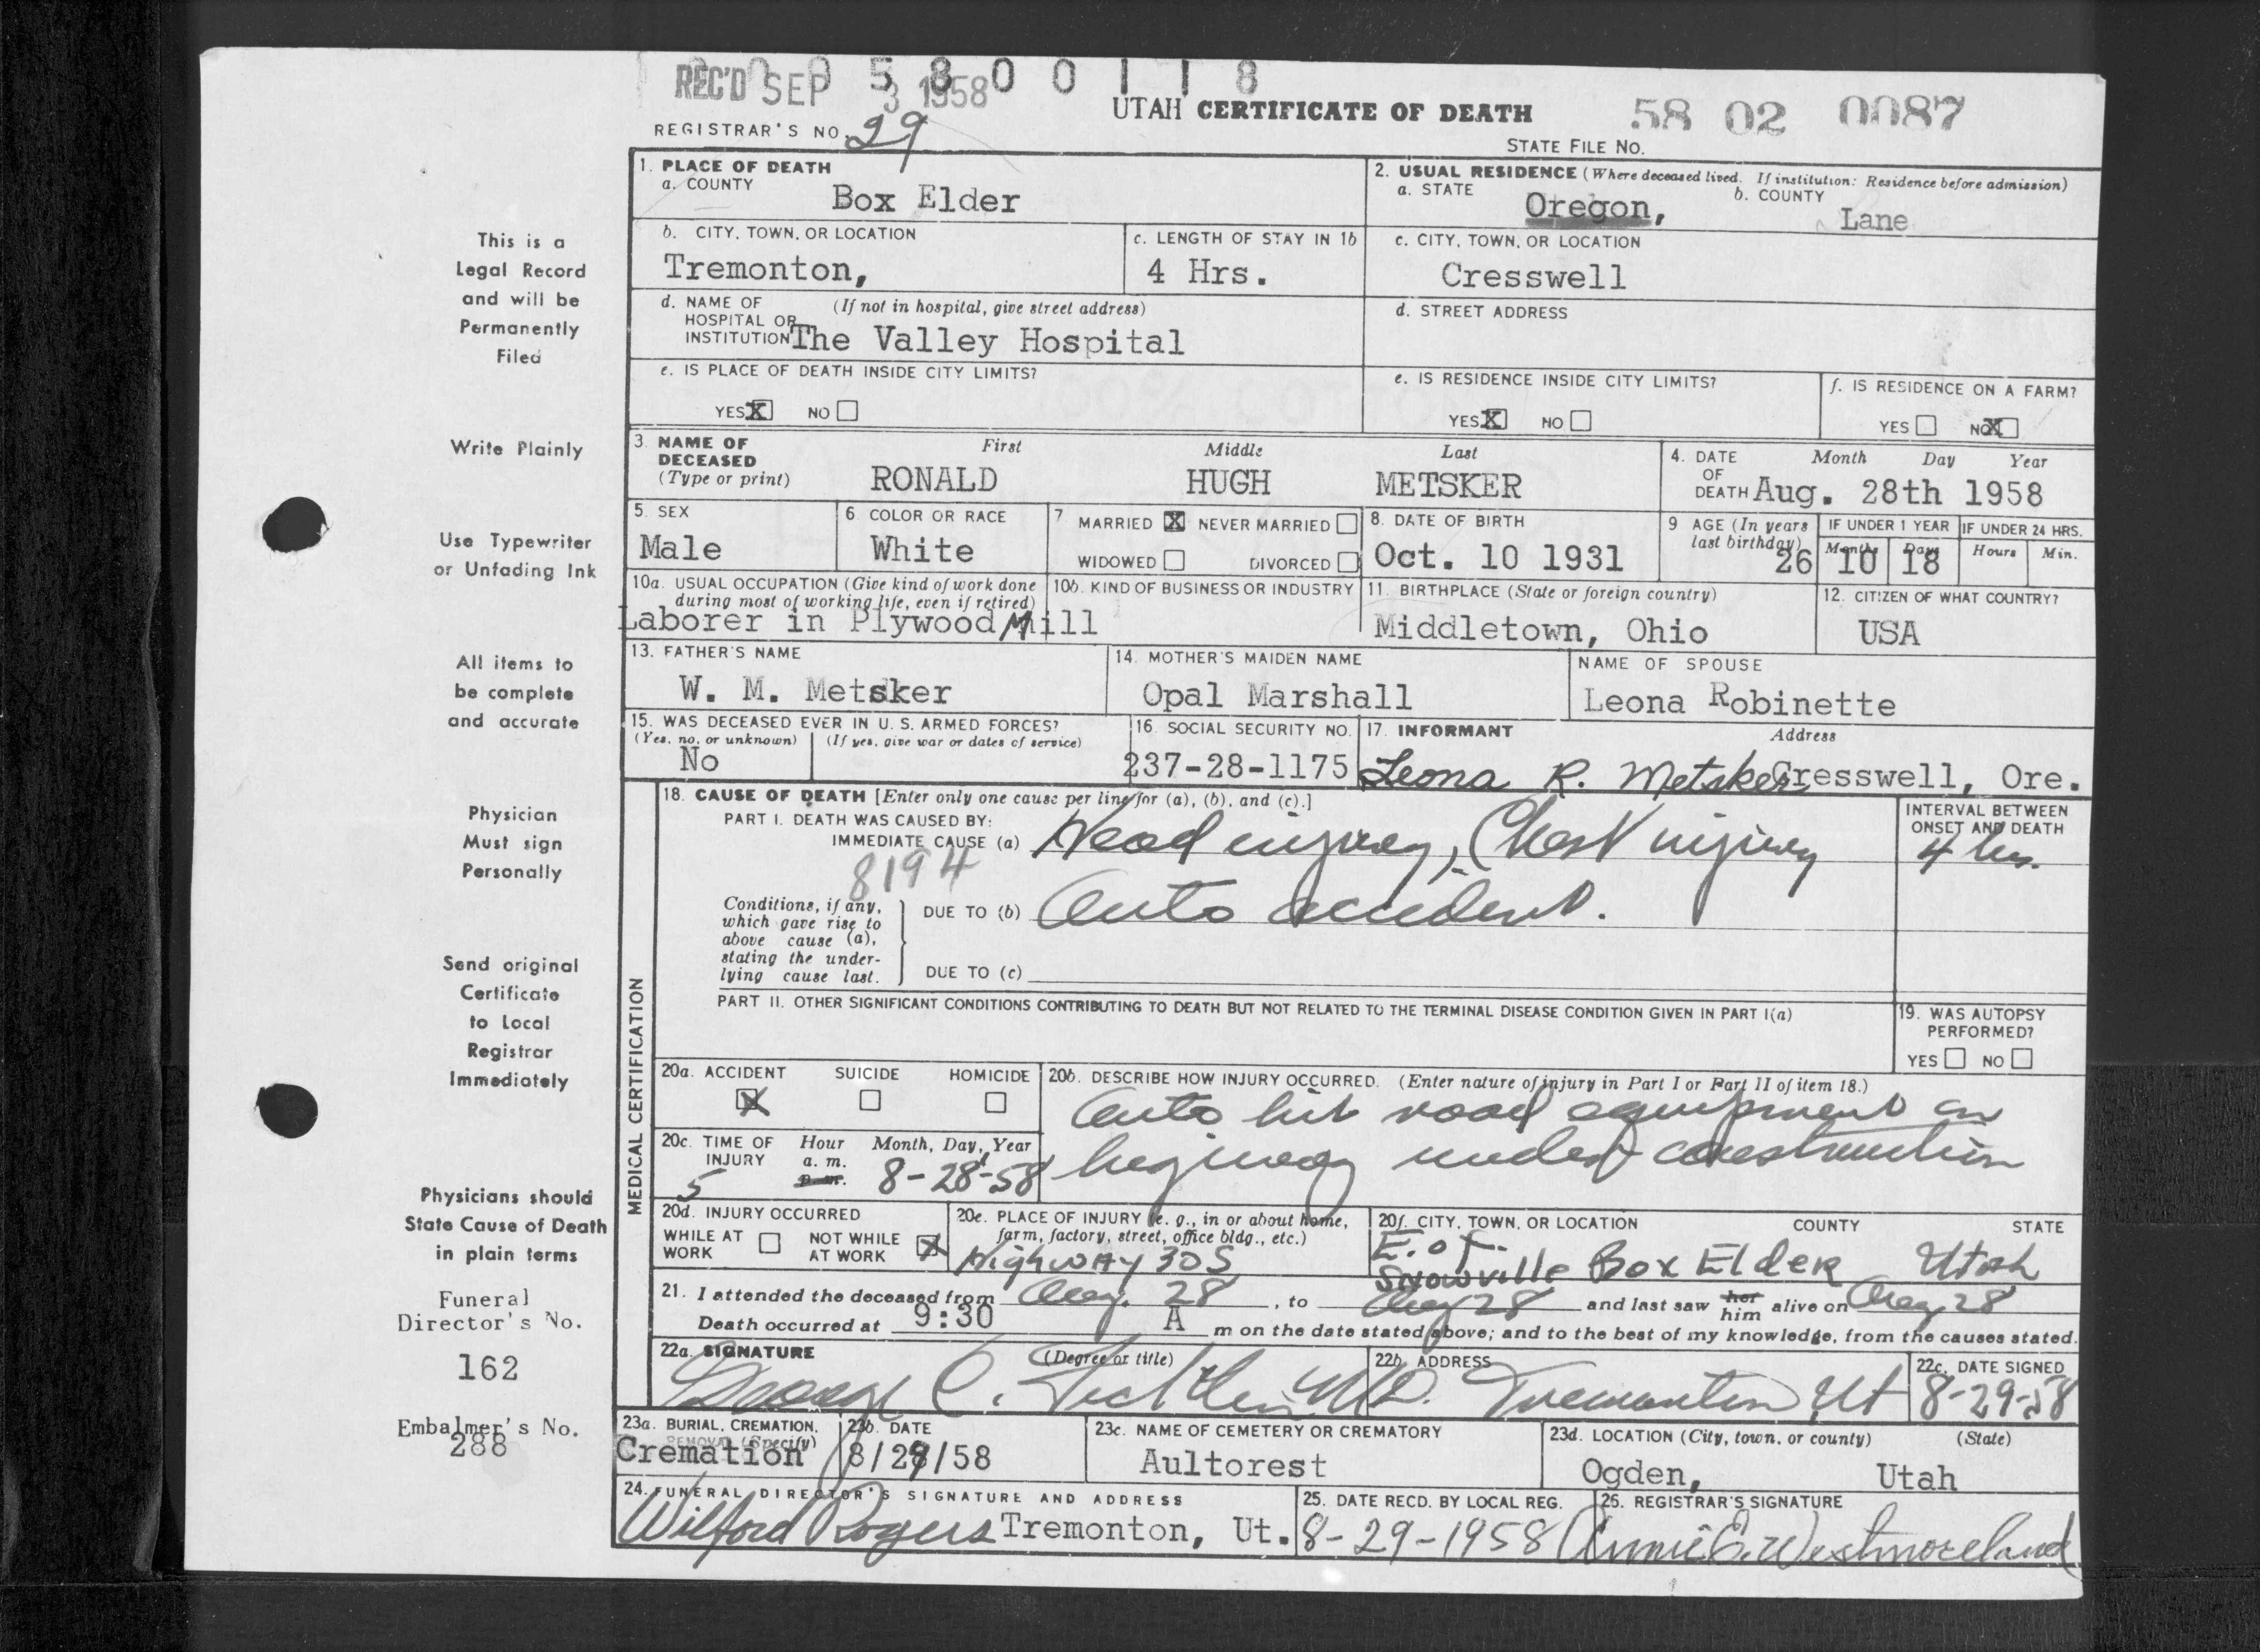 REC'D SEP 3 1958
5 8 0 0 1 1 8
UTAH CERTIFICATE OF DEATH
58 02 0087
REGISTRAR'S NO. 29
STATE FILE NO.
1. PLACE OF DEATH
a. COUNTY
Box Elder
2. USUAL RESIDENCE (Where deceased lived. If institution: Residence before admission)
a. STATE Oregon, b. COUNTY Lane
b. CITY, TOWN, OR LOCATION
Tremonton,
c. LENGTH OF STAY IN 1b
4 Hrs.
c. CITY, TOWN, OR LOCATION
Cresswell
d. NAME OF HOSPITAL OR INSTITUTION (If not in hospital, give street address)
The Valley Hospital
d. STREET ADDRESS
e. IS PLACE OF DEATH INSIDE CITY LIMITS?
YES X NO
e. IS RESIDENCE INSIDE CITY LIMITS?
YES X NO
f. IS RESIDENCE ON A FARM?
YES NO X
3. NAME OF DECEASED (Type or print)
First Middle Last
RONALD HUGH METSKER
4. DATE OF DEATH
Month Day Year
Aug. 28th 1958
5. SEX
Male
6. COLOR OR RACE
White
7. MARRIED X NEVER MARRIED
WIDOWED DIVORCED
8. DATE OF BIRTH
Oct. 10 1931
9. AGE (In years last birthday)
26
IF UNDER 1 YEAR
Months Days
10 18
IF UNDER 24 HRS.
Hours Min.
10a. USUAL OCCUPATION (Give kind of work done during most of working life, even if retired)
10b. KIND OF BUSINESS OR INDUSTRY
Laborer in Plywood Mill
11. BIRTHPLACE (State or foreign country)
Middletown, Ohio
12. CITIZEN OF WHAT COUNTRY?
USA
13. FATHER'S NAME
W. M. Metsker
14. MOTHER'S MAIDEN NAME
Opal Marshall
NAME OF SPOUSE
Leona Robinette
15. WAS DECEASED EVER IN U. S. ARMED FORCES?
(Yes, no, or unknown) (If yes, give war or dates of service)
No
16. SOCIAL SECURITY NO.
237-28-1175
17. INFORMANT Address
Leona R. Metsker Cresswell, Ore.
MEDICAL CERTIFICATION
18. CAUSE OF DEATH [Enter only one cause per line for (a), (b), and (c).]
PART I. DEATH WAS CAUSED BY:
IMMEDIATE CAUSE (a) Head injury, Chest injury
8194
INTERVAL BETWEEN ONSET AND DEATH
4 hrs.
Conditions, if any, which gave rise to above cause (a), stating the underlying cause last.
DUE TO (b) Auto accident.
DUE TO (c)
PART II. OTHER SIGNIFICANT CONDITIONS CONTRIBUTING TO DEATH BUT NOT RELATED TO THE TERMINAL DISEASE CONDITION GIVEN IN PART I(a)
19. WAS AUTOPSY PERFORMED?
YES NO
20a. ACCIDENT SUICIDE HOMICIDE
X
20b. DESCRIBE HOW INJURY OCCURRED. (Enter nature of injury in Part I or Part II of item 18.)
Auto hit road equipment on
higway under construction
20c. TIME OF INJURY
Hour Month, Day, Year
a. m.
p. m.
5 8-28-58
20d. INJURY OCCURRED
WHILE AT WORK NOT WHILE AT WORK X
20e. PLACE OF INJURY (e. g., in or about home, farm, factory, street, office bldg., etc.)
Highway 30S
20f. CITY, TOWN, OR LOCATION COUNTY STATE
E. of
Snowville Box Elder Utah
21. I attended the deceased from Aug. 28, to Aug 28 and last saw her him alive on Aug 28
Death occurred at 9:30 A m on the date stated above; and to the best of my knowledge, from the causes stated.
22a. SIGNATURE (Degree or title)
George C. M.D.
22b. ADDRESS
Tremonton Ut
22c. DATE SIGNED
8-29-58
23a. BURIAL, CREMATION, REMOVAL (Specify)
Cremation
23b. DATE
8/29/58
23c. NAME OF CEMETERY OR CREMATORY
Aultorest
23d. LOCATION (City, town, or county) (State)
Ogden, Utah
24. FUNERAL DIRECTOR'S SIGNATURE AND ADDRESS
Wilford Rogers Tremonton, Ut.
25. DATE RECD. BY LOCAL REG.
8-29-1958
26. REGISTRAR'S SIGNATURE
Annie E. Westmoreland
This is a
Legal Record
and will be
Permanently
Filed
Write Plainly
Use Typewriter
or Unfading Ink
All items to
be complete
and accurate
Physician
Must sign
Personally
Send original
Certificate
to Local
Registrar
Immediately
Physicians should
State Cause of Death
in plain terms
Funeral
Director's No.
162
Embalmer's No.
288